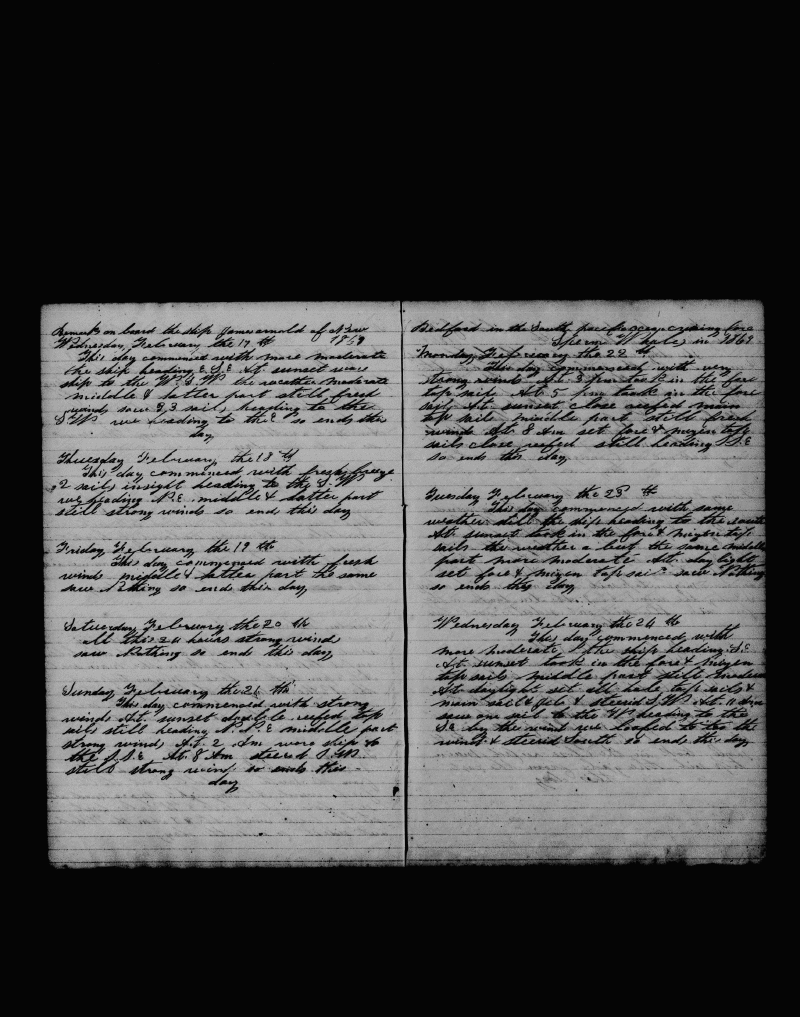 Remarks on board the ship James arnold of New
Wednesday, February the 17 th 1869
This day commenced with more moderate
the ship heading E.S.E At sunset wore
ship to the W.S.W the weather moderate
middle & latter part still
winds saw 2 3 sails heading to the
S W we heading to the E so ends the
day
Thursday February the 18 th
This day commenced with fresh
2 sails insight heading to the S.W
we heading N.E middle & latter part
still strong winds so end this day
Friday February the 19 th
This day commenced with fresh
winds middle & latter part the same
saw Nothing so end this day
Saturday February the 20 th
all this 24 hours strong wind
saw Nothing so end this day
Sunday February the 21 th
This day commenced with strong
winds At sunset double reefed top
sails still heading N.N.E middle part
strong wind At 2 Am wore ship to
the S.S.E At 8 Am steered S.W
still strong wind so ends this
day
Bedford in the South pacific
Sperm Whales in 1869
Monday February the 22
This day commenced with very
strong winds At 3 pm took in the fore
top sail At 5 pm took in the fore
sail At sunset close reefed main
top sail middle part still
winds At 8 Am set fore & mizen top
sails close reefed still heading S.S.E
so ends this day
Tuesday February the 23 th
This day commenced with same
weather still the ship heading to the south
At sunset took in the fore & mizen top
sails the weather a bout the same middle
part more moderate At day light
set fore & mizen top sail saw Nothing
so ends this day
Wednesday February the 24 th
This day commenced with
more moderate the ship heading S.E
At sunset took in the fore & mizen
top sails middle part still
At daylight set all hole top sails &
main sail & jib & steered S.W At 11 Am
saw one sail to the W heading to the
S.E by the wind we to the
wind & steered South so ends the day